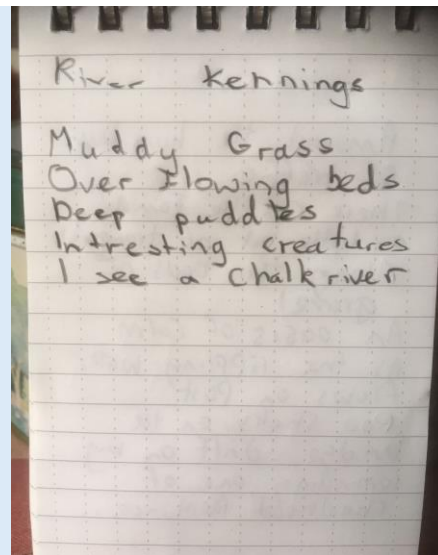 River Kennings
Muddy Grass
Over Flowing beds
Deep puddles
Intresting creatures
I see a chalk river